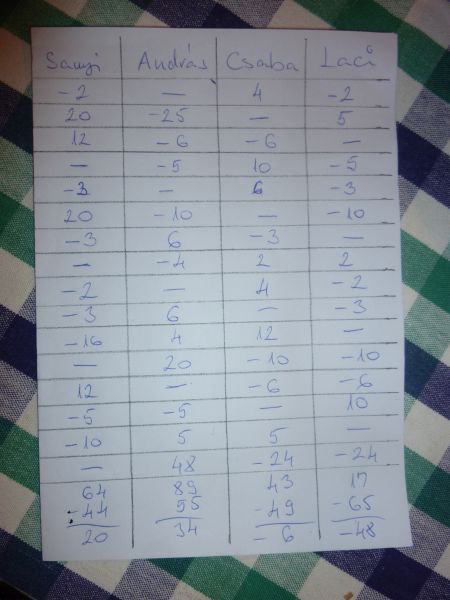 Sanyi András Csaba Laci
-2 — 4 -2
20 -25 — 5
12 -6 -6 —
— -5 10 -5
-3 — 6 -3
20 -10 — -10
-3 6 -3 —
— -4 2 2
-2 — 4 -2
-3 6 — -3
-16 4 12 —
— 20 -10 -10
12 — -6 -6
-5 -5 — 10
-10 5 5 —
— 48 -24 -24
64 89 43 17
-44 55 -49 -65
20 34 -6 -48